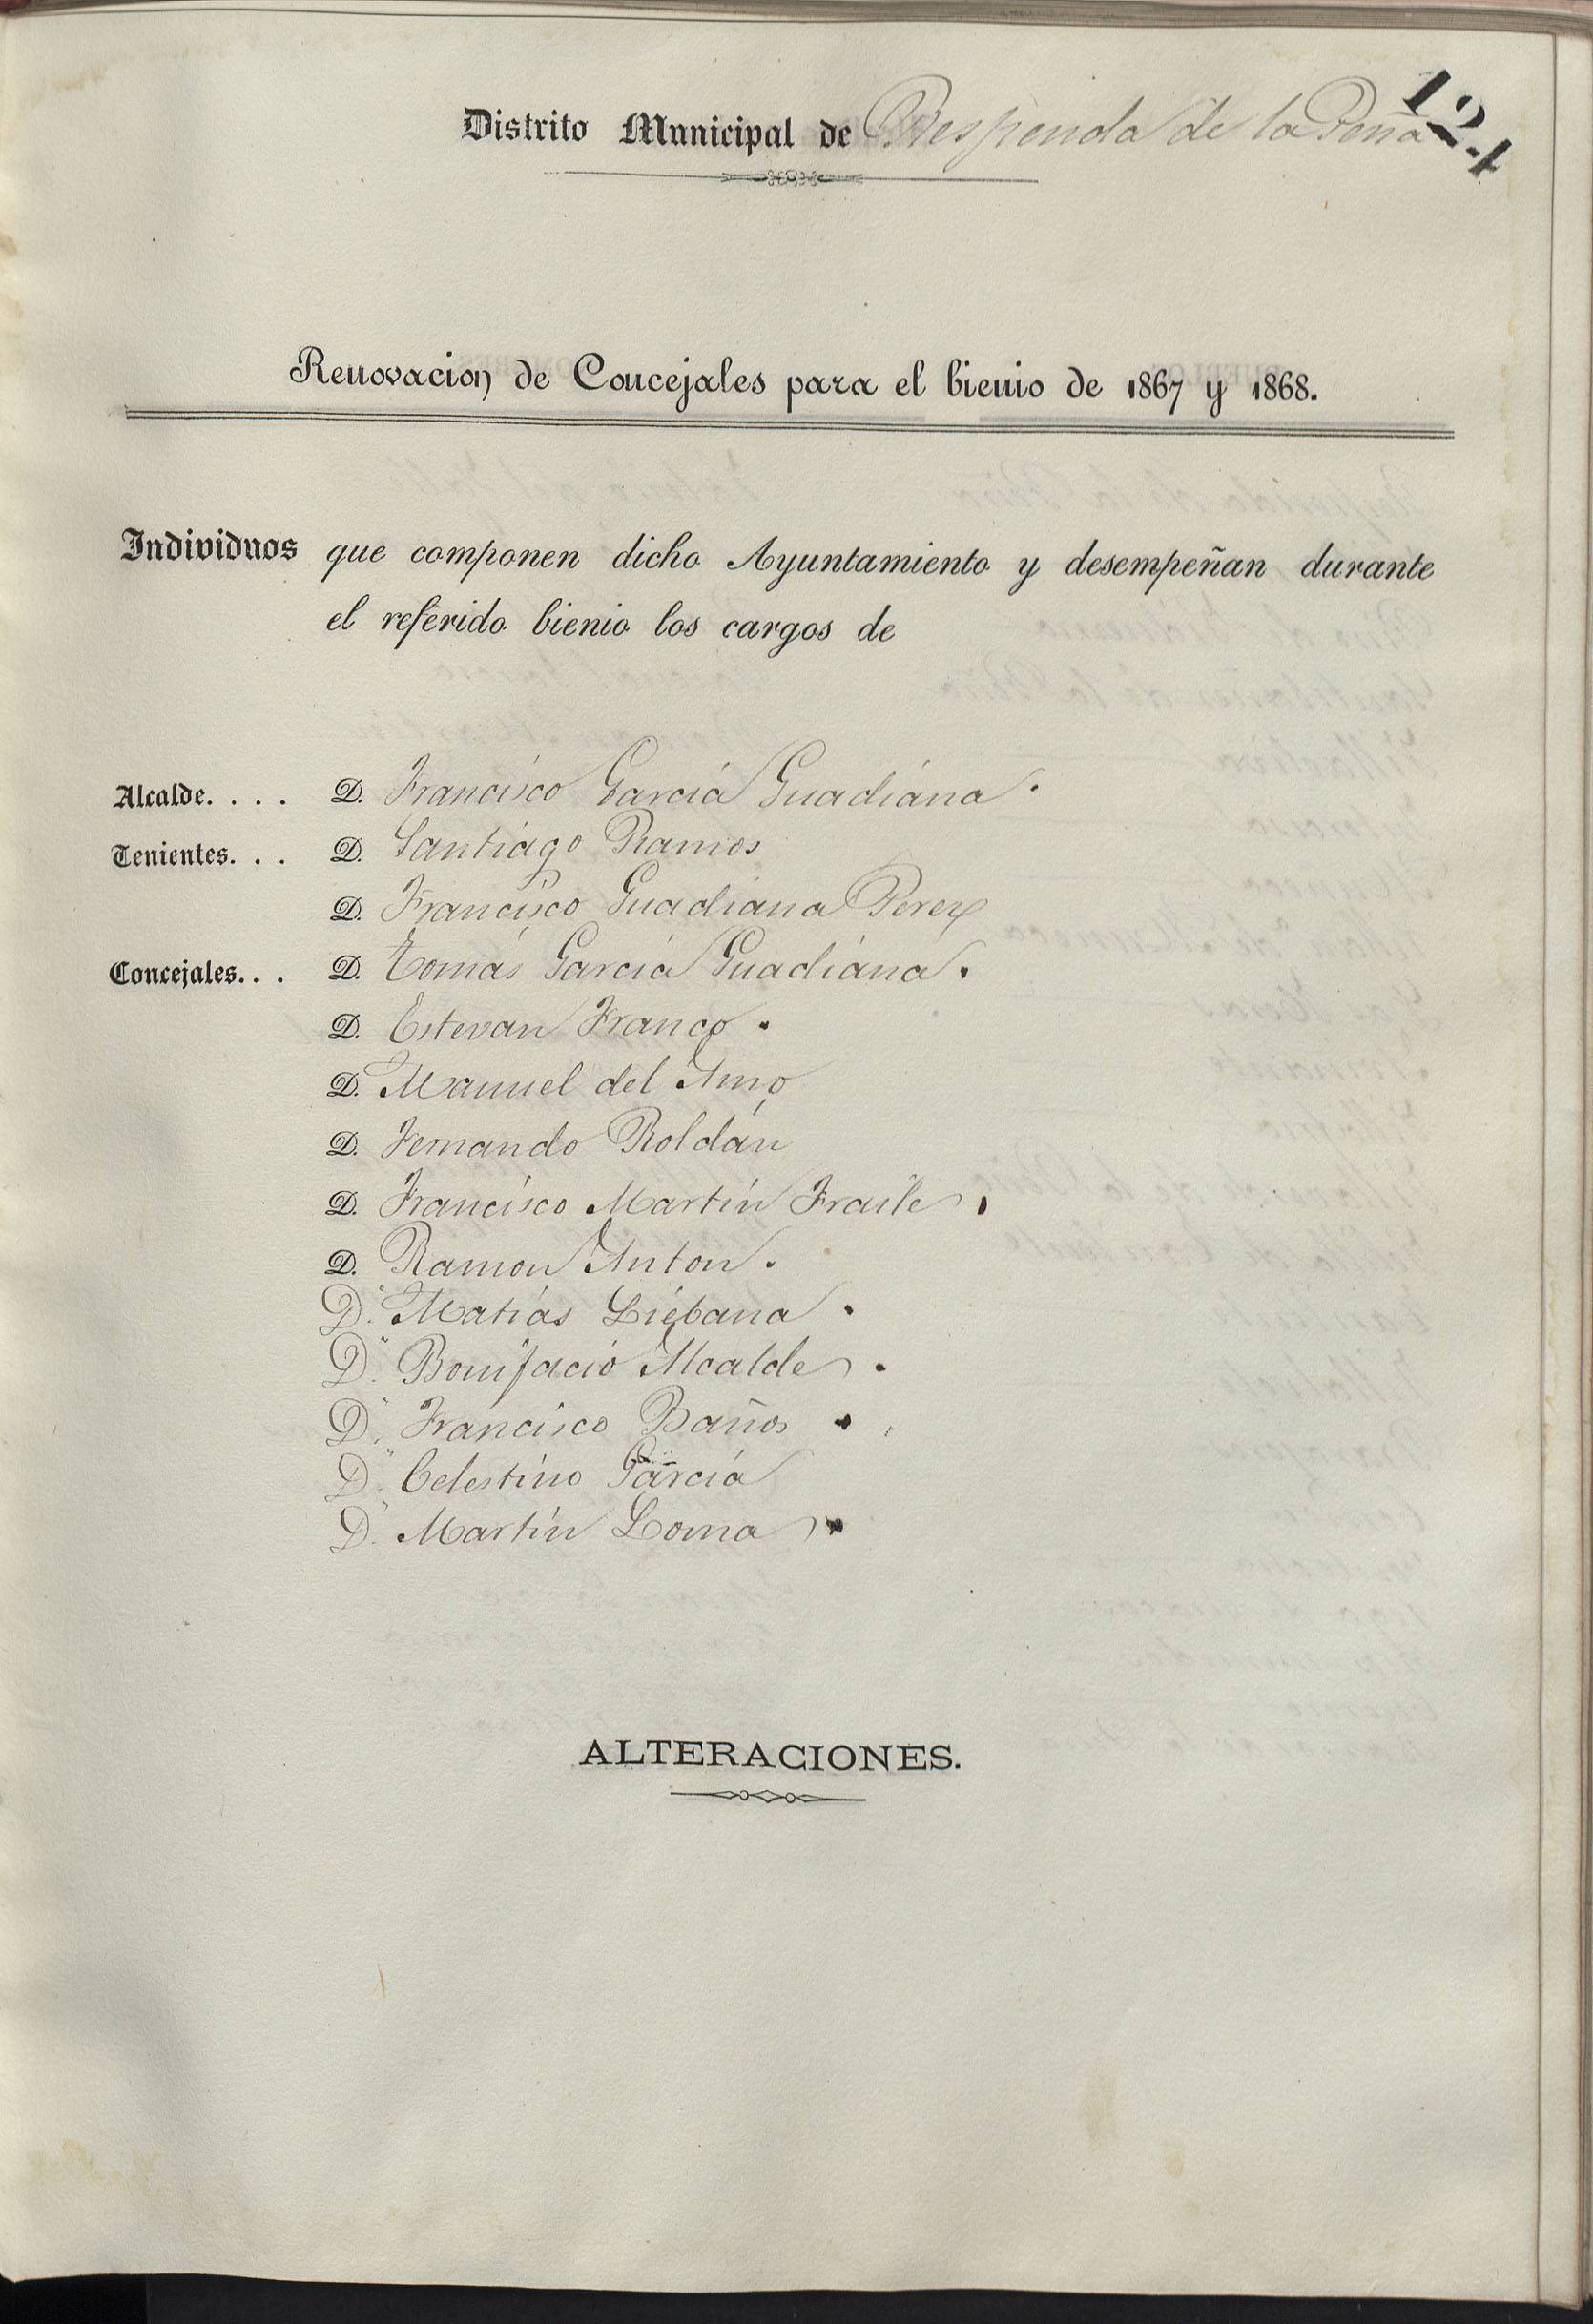 124
Distrito Municipal de Respenda de la Peña
Renovacion de Concejales para el bienio de 1867 y 1868.
Individuos que componen dicho Ayuntamiento y desempeñan durante
el referido bienio los cargos de
Alcalde. . . . D. Francisco García Guadiana.
Tenientes. . . D. Santiago Ramos
D. Francisco Guadiana Perez
Concejales. . . D. Tomás García Guadiana.
D. Estevan Franco.
D. Manuel del Amo
D. Fernando Roldán
D. Francisco Martín Fraile.
D. Ramon Anton.
D.n Matías Liébana.
D.n Bonifacio Alcalde.
D.n Francisco Baños.
D.n Celestino García
D.n Martín Loma.
ALTERACIONES.